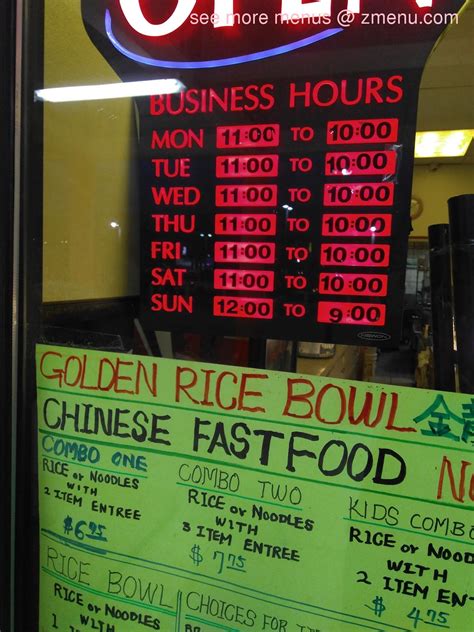 see more menus @ zmenu.com
OPEN
BUSINESS HOURS
MON 11:00 TO 10:00
TUE 11:00 TO 10:00
WED 11:00 TO 10:00
THU 11:00 TO 10:00
FRI 11:00 TO 10:00
SAT 11:00 TO 10:00
SUN 12:00 TO 9:00
GOLDEN RICE BOWL 金
CHINESE FAST FOOD
COMBO ONE
RICE or NOODLES
WITH
2 ITEM ENTREE
$6.75
COMBO TWO
RICE or NOODLES
WITH
3 ITEM ENTREE
$7.75
KIDS COMBO
RICE or NOOD
WITH
2 ITEM EN
$4.75
RICE BOWL
RICE or NOODLES
WITH
1
CHOICES FOR